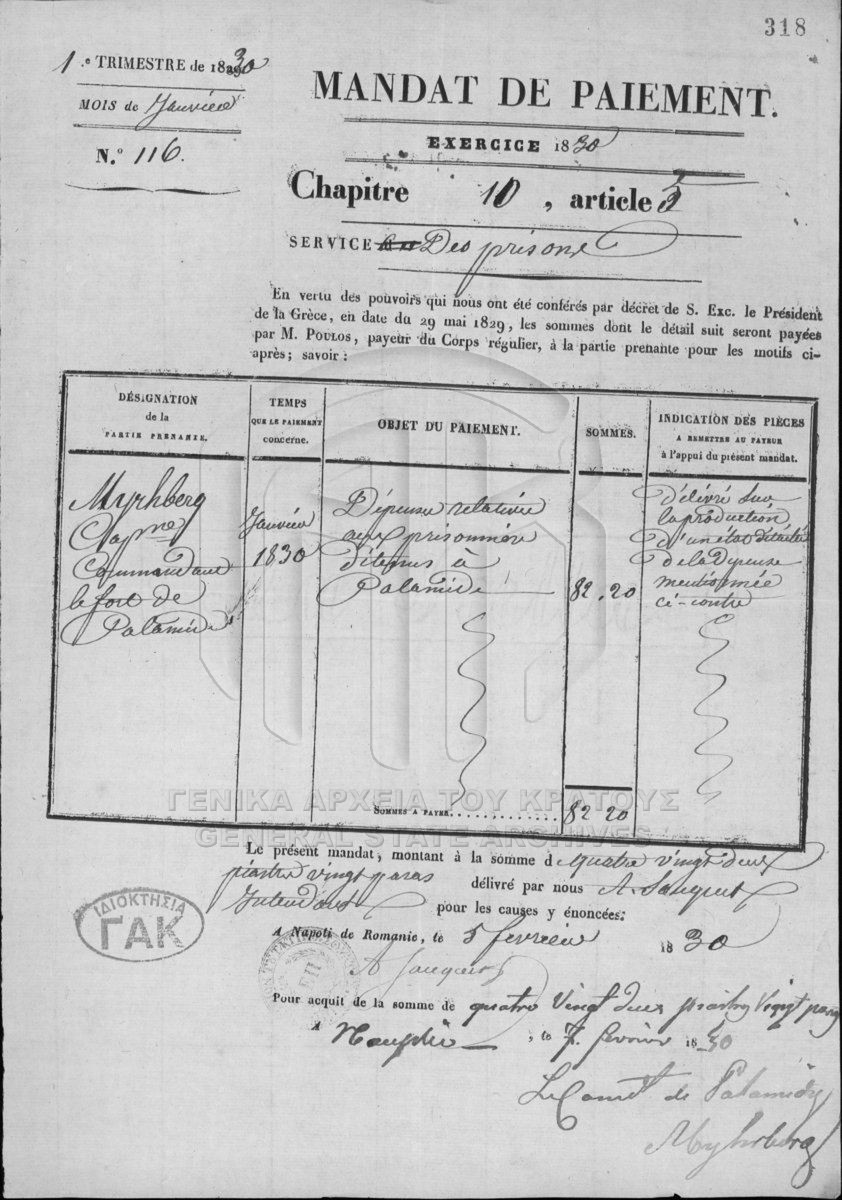 318
1.e TRIMESTRE de 1830
MOIS de Janvier
N.º 116.
MANDAT DE PAIEMENT.
EXERCICE 1830
Chapitre 10, article 5
SERVICE Des prisons
En vertu des pouvoirs qui nous ont été conférés par décret de S. Exc. le Président
de la Grèce, en date du 29 mai 1829, les sommes dont le détail suit seront payées
par M. POULOS, payeur du Corps régulier, à la partie prenante pour les motifs ci-
après; savoir:
DÉSIGNATION
de la
PARTIE PRENANTE.
TEMPS
QUE LE PAIEMENT
concerne.
OBJET DU PAIEMENT.
SOMMES.
INDICATION DES PIÈCES
A REMETTRE AU PAYEUR
à l'appui du présent mandat.
Myrhberg
Commandant
le fort de
Palamide
Janvier
1830
Dépense relative
aux prisonniers
détenus à
Palamide
82.20
délivré sur
la production
d'un état détaillé
de la Dépense
mentionnée
ci-contre
SOMMES A PAYER
82 20
ΓΕΝΙΚΑ ΑΡΧΕΙΑ ΤΟΥ ΚΡΑΤΟΥΣ
GENERAL STATE ARCHIVES
Le présent mandat, montant à la somme de quatre vingt deux
piastre vingt paras délivré par nous
Intendant pour les causes y énoncées:
ΙΔΙΟΚΤΗΣΙΑ
ΓΑΚ
A Napoli de Romanie, le 5 fevrier 1830
Pour acquit de la somme de quatre vingt deux piastres vingt paras
A Nauplie, le 7 fevrier 1830
Le Comdt de Palamidy
Myhrberg